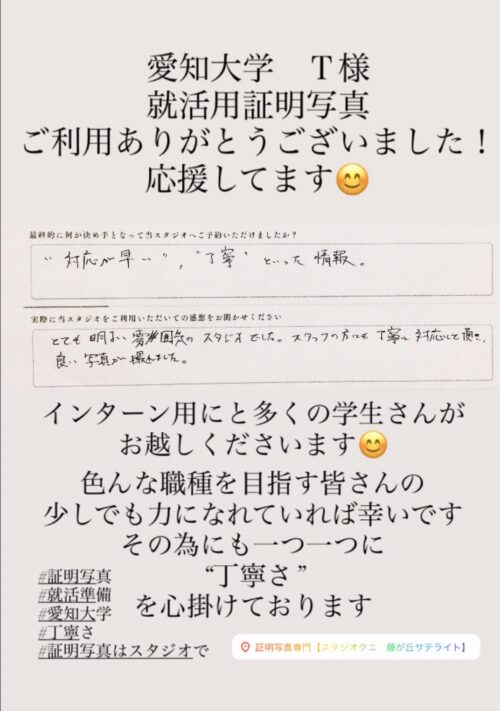 愛知大学　T様
就活用証明写真
ご利用ありがとうございました！
応援してます😊
最終的に何が決め手となって当スタジオへご予約いただけましたか？
"対応が早い"，"丁寧"といった情報。
実際に当スタジオをご利用いただいての感想をお聞かせください
とても明るい雰囲気のスタジオでした。スタッフの方にも丁寧に対応して頂き、
良い写真が撮れました。
インターン用にと多くの学生さんが
お越しくださいます😊
色んな職種を目指す皆さんの
少しでも力になれていれば幸いです
その為にも一つ一つに
“丁寧さ”
を心掛けております
#証明写真
#就活準備
#愛知大学
#丁寧さ
#証明写真はスタジオで
証明写真専門【スタジオクニ　藤が丘サテライト】